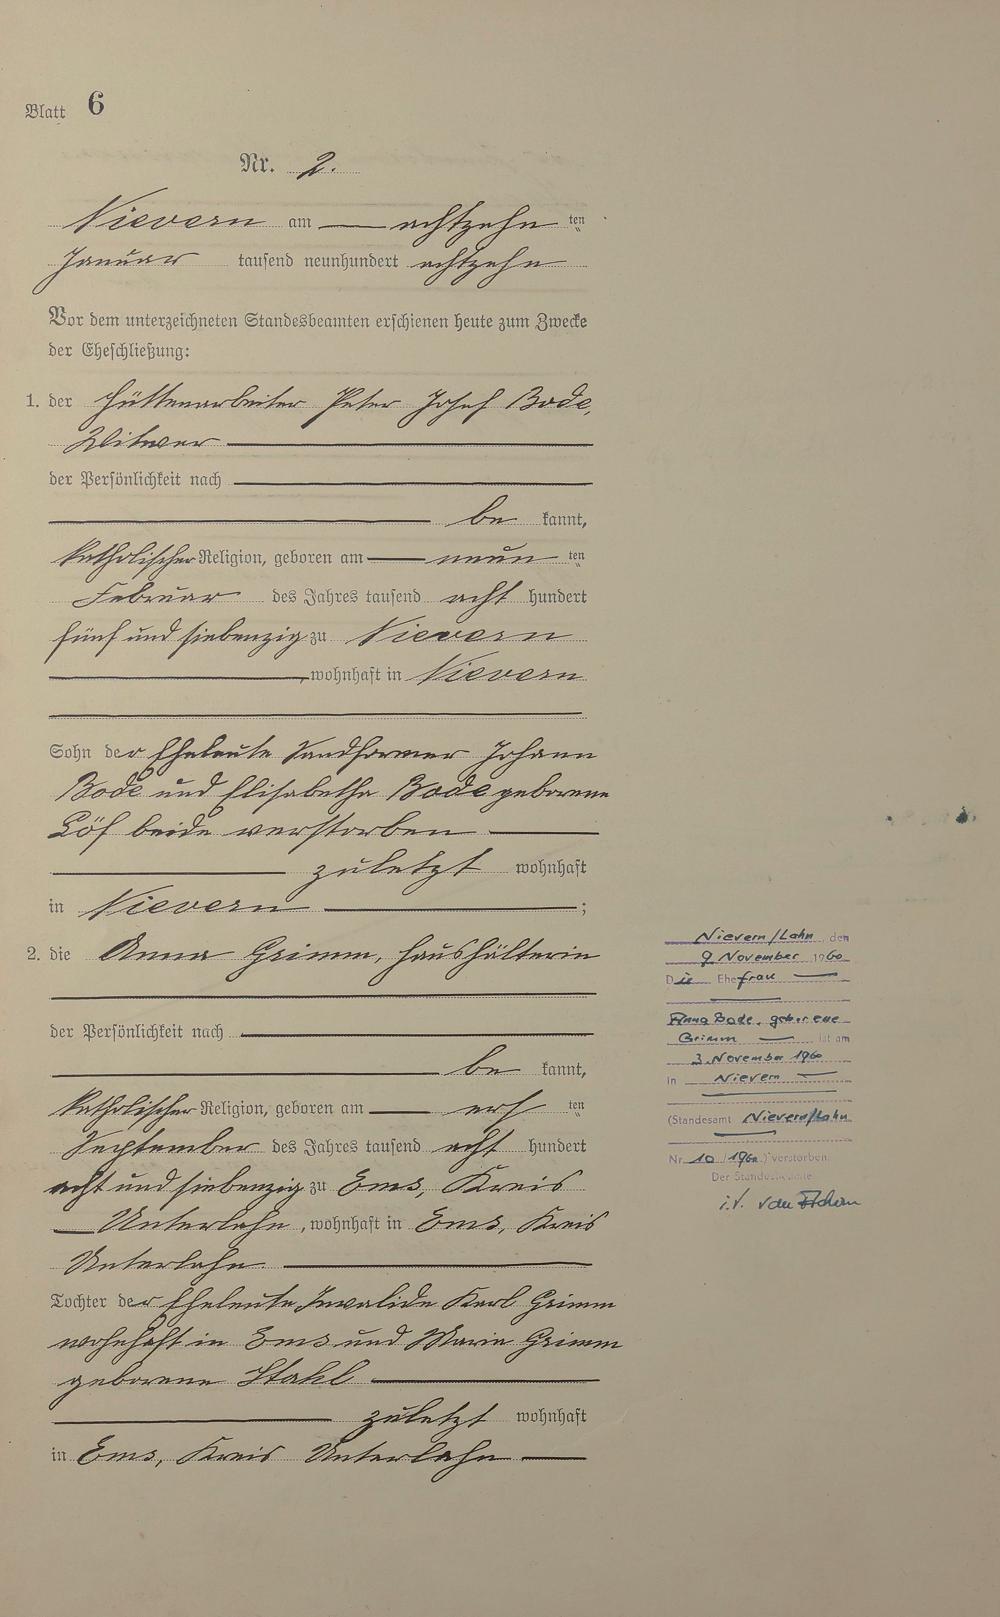 Blatt 6
Nr. 2.
Nievern am achtzehn ten
Januar tausend neunhundert achtzehn
Vor dem unterzeichneten Standesbeamten erschienen heute zum Zwecke
der Eheschließung:
1. der Hüttenarbeiter Peter Josef Bode,
Witwer
der Persönlichkeit nach
be kannt,
katholischer Religion, geboren am neun ten
Februar des Jahres tausend acht hundert
fünf und siebenzig zu Nievern
, wohnhaft in Nievern
Sohn der Eheleute Sandformer Johann
Bode und Elisabetha Bode geborene
Löf beide verstorben
zuletzt wohnhaft
in Nievern ;
2. die Anna Grimm, Haushälterin
der Persönlichkeit nach
be kannt,
katholischer Religion, geboren am ers ten
September des Jahres tausend acht hundert
acht und siebenzig zu Ems, Kreis
Unterlahn, wohnhaft in Ems, Kreis
Unterlahn
Tochter der Eheleute Invalide Karl Grimm
wohnhaft in Ems und Maria Grimm
geborene Stahl
zuletzt wohnhaft
in Ems, Kreis Unterlahn
Nievern/Lahn, den
9 November 1960
Die Ehefrau
Anna Bode, geborene
Grimm ist am
3. November 1960
in Nievern
(Standesamt Nievern/Lahn
Nr. 10 / 1960) verstorben.
Der Standesbeamte
i.V.